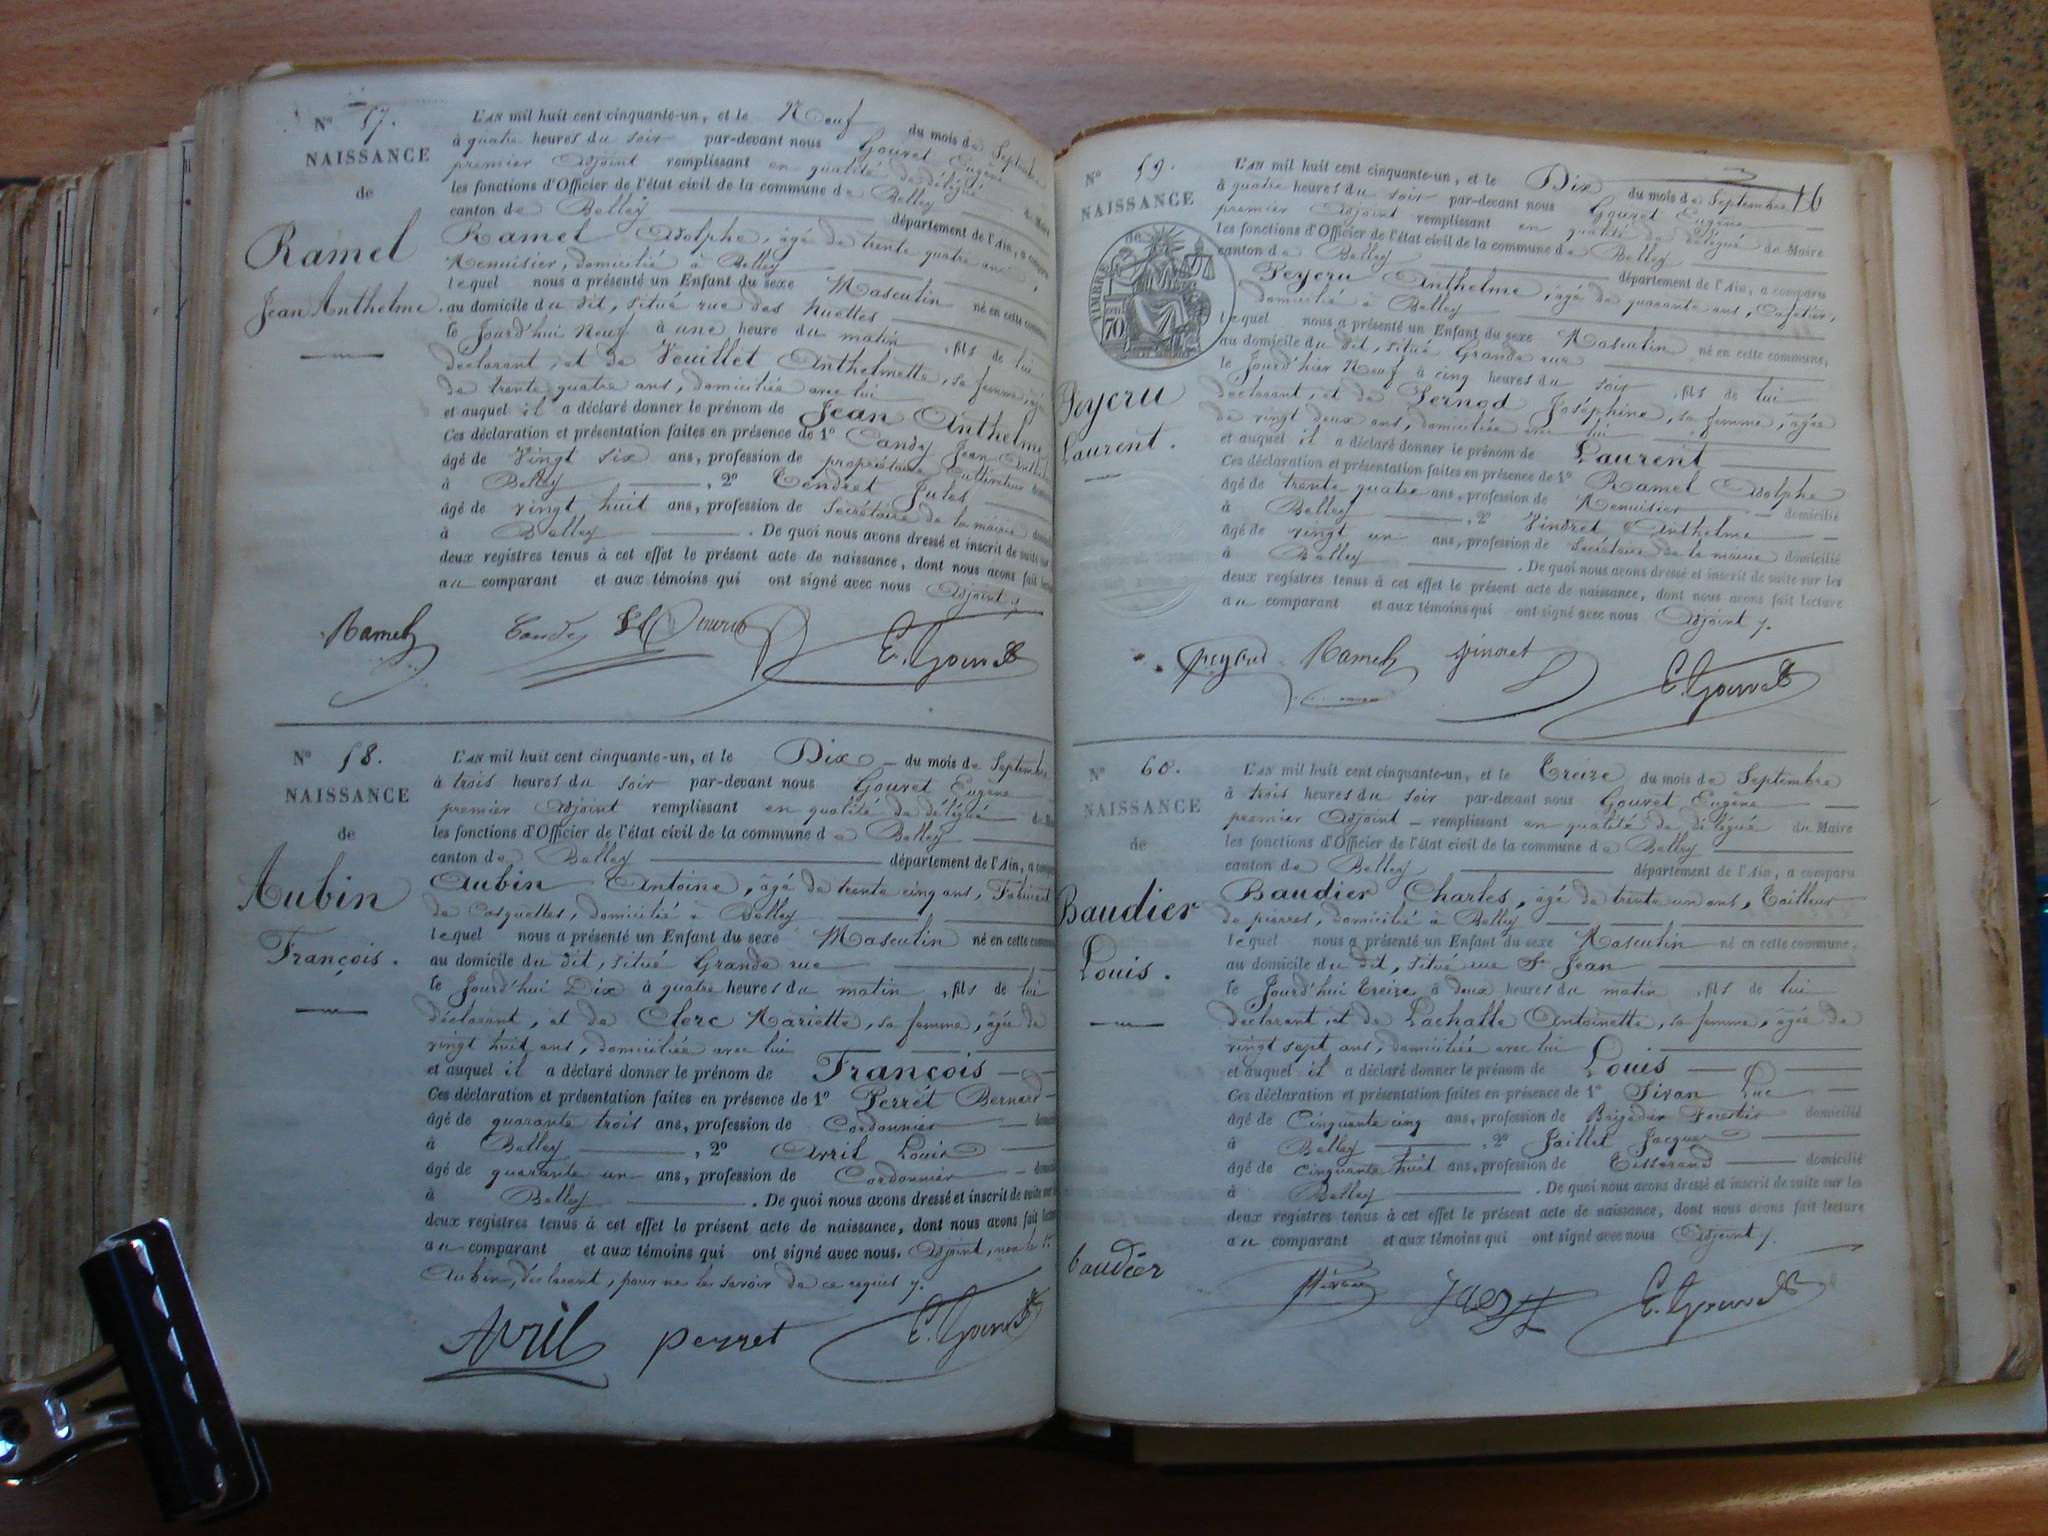 N° 57.
NAISSANCE
de
Ramel
Jean Anthelme.
L'AN mil huit cent cinquante-un, et le Neuf du mois de Septembre
à quatre heures du soir par-devant nous Gouvet Eugène
premier Adjoint remplissant en qualité de délégué
les fonctions d'Officier de l'état civil de la commune de Belley
canton de Belley département de l'Ain, a comparu
Ramel Adolphe, âgé de trente quatre ans,
Menuisier, domicilié à Belley
lequel nous a présenté un Enfant du sexe Masculin né en cette commune,
au domicile du dit, situé rue des
le Jourd'hui Neuf à une heure du matin, fils de lui
déclarant, et de Veuillet Anthelmette, sa femme, âgée
de trente quatre ans, domiciliée avec lui
et auquel il a déclaré donner le prénom de Jean Anthelme
Ces déclaration et présentation faites en présence de 1° Candy Jean
âgé de Vingt six ans, profession de propriétaire Cultivateur
à Belley, 2° Tendret Jules
âgé de vingt huit ans, profession de Secrétaire de la mairie
à Belley. De quoi nous avons dressé et inscrit de suite sur
deux registres tenus à cet effet le présent acte de naissance, dont nous avons fait lecture
au comparant et aux témoins qui ont signé avec nous Adjoint
Ramel Candy E. Gouvet
N° 58.
NAISSANCE
de
Aubin
François.
L'AN mil huit cent cinquante-un, et le Dix du mois de Septembre
à trois heures du soir par-devant nous Gouvet Eugène
premier Adjoint remplissant en qualité de délégué du Maire
les fonctions d'Officier de l'état civil de la commune de Belley
canton de Belley département de l'Ain, a comparu
Aubin Antoine, âgé de trente cinq ans, Fabricant
de Casquettes, domicilié à Belley
lequel nous a présenté un Enfant du sexe Masculin né en cette commune
au domicile du dit, situé Grande rue
le Jourd'hui Dix à quatre heures du matin, fils de lui
déclarant, et de Clerc Mariette, sa femme, âgée de
vingt huit ans, domiciliée avec lui
et auquel il a déclaré donner le prénom de François
Ces déclaration et présentation faites en présence de 1° Perret Bernard
âgé de quarante trois ans, profession de Cordonnier
à Belley, 2° Avril Louis
âgé de quarante un ans, profession de Cordonnier
à Belley. De quoi nous avons dressé et inscrit de suite sur
deux registres tenus à cet effet le présent acte de naissance, dont nous avons fait lecture
au comparant et aux témoins qui ont signé avec nous. Adjoint, non le
Aubin, déclarant, pour ne le savoir de ce requis
Avril perret E. Gouvet
16
N° 59.
NAISSANCE
de
TIMBRE
70
Peyeru
Laurent.
L'AN mil huit cent cinquante-un, et le Dix du mois de Septembre
à quatre heures du soir par-devant nous Gouvet Eugène
premier Adjoint remplissant en qualité de délégué du Maire
les fonctions d'Officier de l'état civil de la commune de Belley
canton de Belley département de l'Ain, a comparu
Peyeru Anthelme, âgé de quarante ans, Cafetier,
domicilié à Belley
lequel nous a présenté un Enfant du sexe Masculin né en cette commune,
au domicile du dit, situé Grande rue
le Jourd'hier Neuf à cinq heures du soir, fils de lui
déclarant, et de Pernod Joséphine, sa femme, âgée
de vingt deux ans, domiciliée avec lui
et auquel il a déclaré donner le prénom de Laurent
Ces déclaration et présentation faites en présence de 1° Ramel Adolphe
âgé de trente quatre ans, profession de Menuisier domicilié
à Belley, 2° Vindret Anthelme
âgé de vingt un ans, profession de Secrétaire de la mairie domicilié
à Belley. De quoi nous avons dressé et inscrit de suite sur les
deux registres tenus à cet effet le présent acte de naissance, dont nous avons fait lecture
au comparant et aux témoins qui ont signé avec nous Adjoint
Ramel Vindret E. Gouvet
N° 60.
NAISSANCE
de
Baudier
Louis.
L'AN mil huit cent cinquante-un, et le Treize du mois de Septembre
à trois heures du soir par-devant nous Gouvet Eugène
premier Adjoint remplissant en qualité de délégué du Maire
les fonctions d'Officier de l'état civil de la commune de Belley
canton de Belley département de l'Ain, a comparu
Baudier Charles, âgé de trente un ans, Tailleur
de pierres, domicilié à Belley
lequel nous a présenté un Enfant du sexe Masculin né en cette commune,
au domicile du dit, situé rue St Jean
le Jourd'hui treize à deux heures du matin, fils de lui
déclarant, et de Lachalle Antoinette, sa femme, âgée de
vingt sept ans, domiciliée avec lui
et auquel il a déclaré donner le prénom de Louis
Ces déclaration et présentation faites en présence de 1° Sivan Luc
âgé de Cinquante cinq ans, profession de Brigadier Forestier domicilié
à Belley, 2° Jaillet Jacques
âgé de cinquante huit ans, profession de Tisserand domicilié
à Belley. De quoi nous avons dressé et inscrit de suite sur les
deux registres tenus à cet effet le présent acte de naissance, dont nous avons fait lecture
au comparant et aux témoins qui ont signé avec nous Adjoint
baudier E. Gouvet